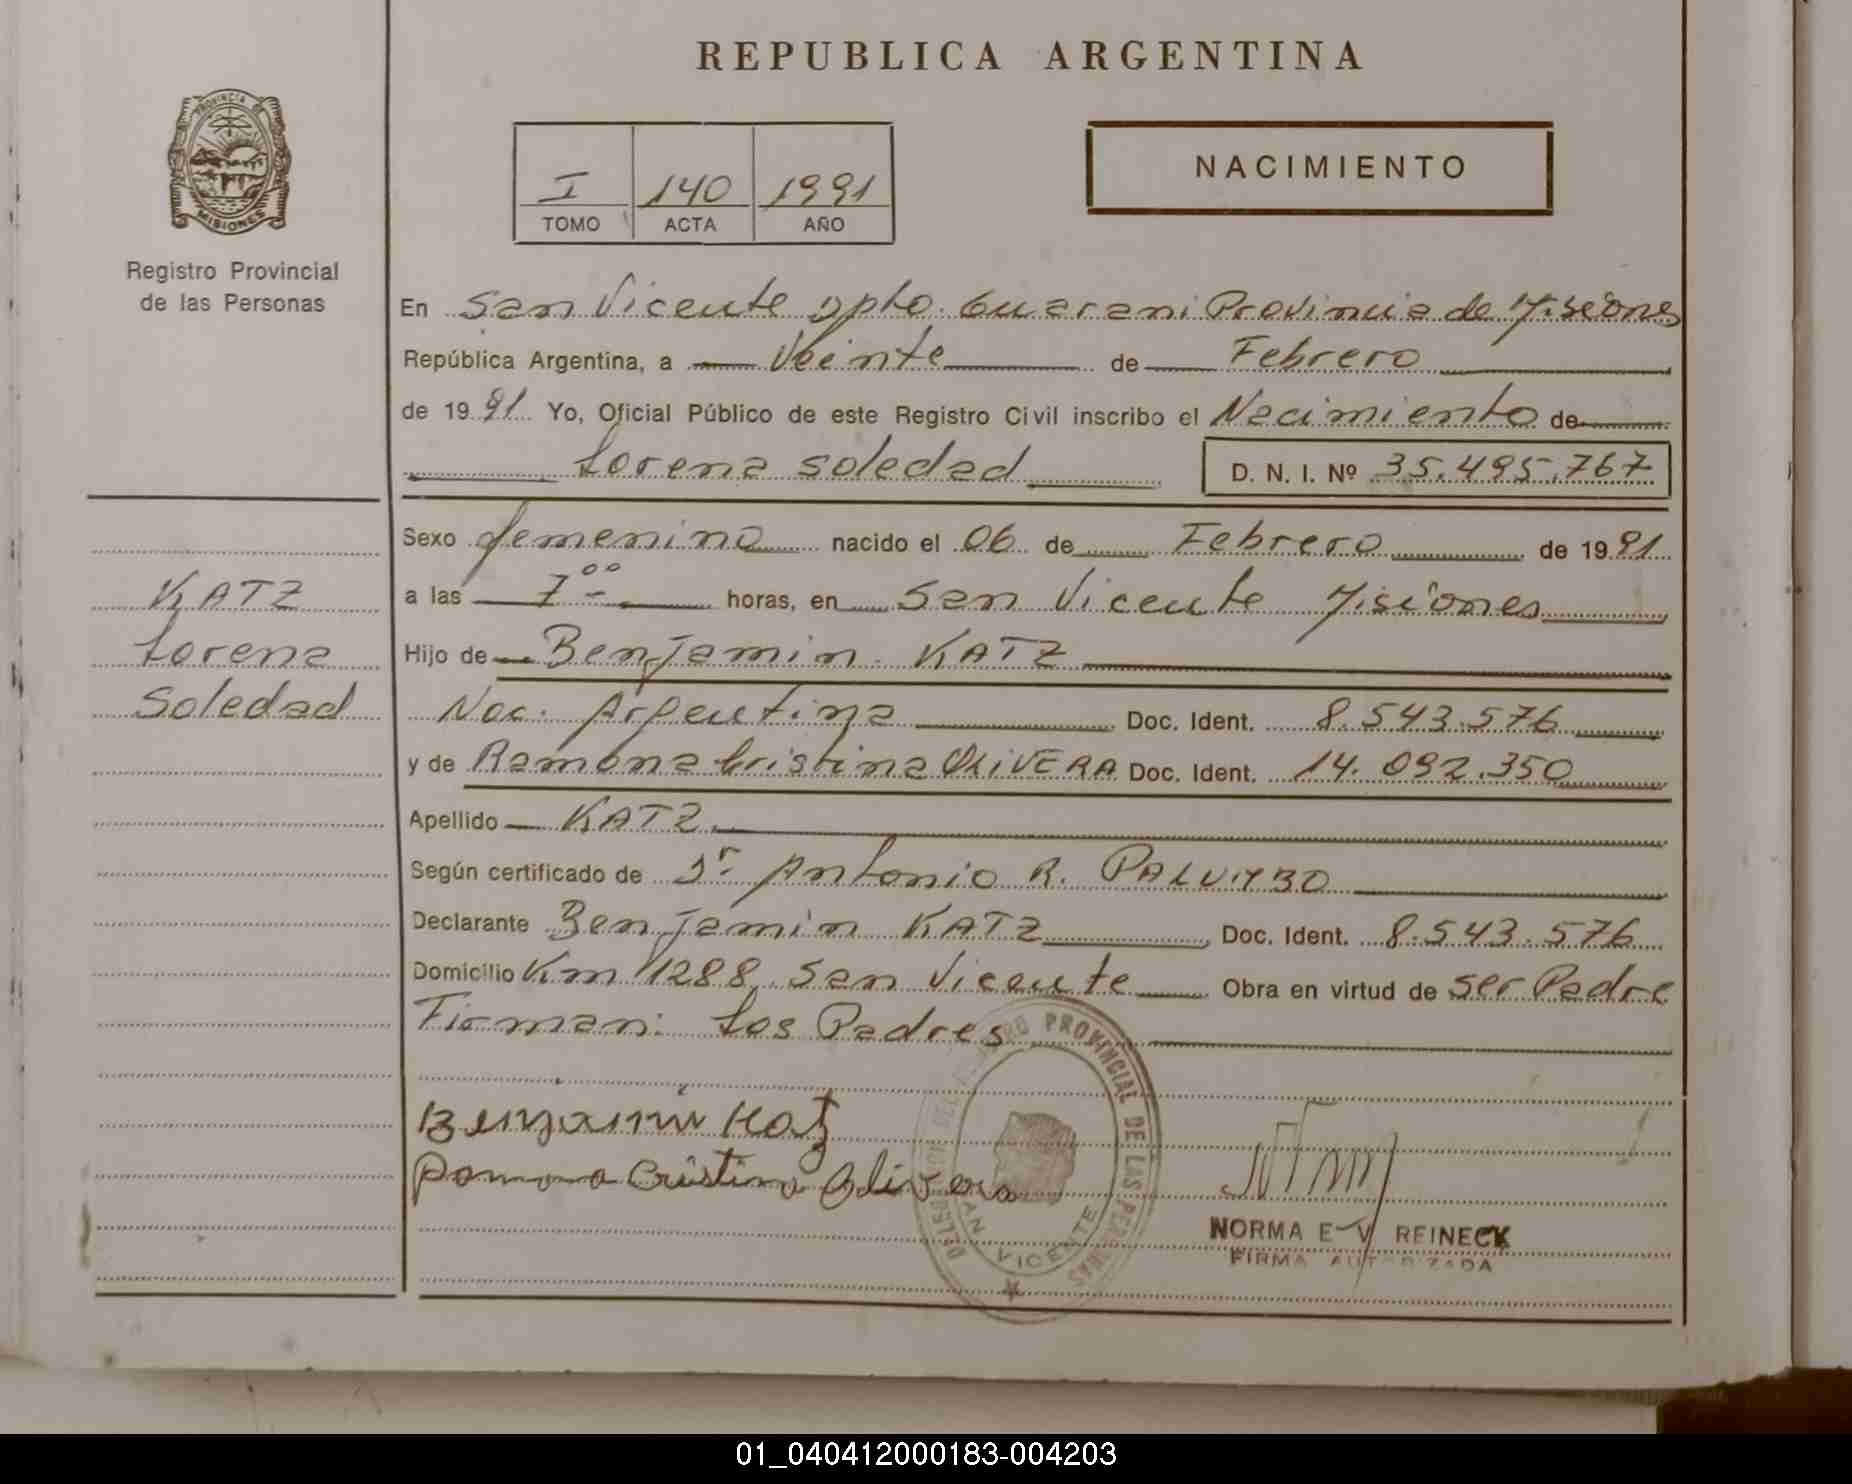 REPUBLICA ARGENTINA
PROVINCIA DE
MISIONES
Registro Provincial
de las Personas
I 140 1991
TOMO ACTA AÑO
NACIMIENTO
En San Vicente Dpto. Guarani Provincia de Misiones
República Argentina, a Veinte de Febrero
de 1991 Yo, Oficial Público de este Registro Civil inscribo el Nacimiento de
Lorena Soledad D. N. I. Nº 35.495.767
Sexo femenino nacido el 06 de Febrero de 1991
KATZ
Lorena
Soledad
a las 7⁰⁰ horas, en San Vicente Misiones
Hijo de Benjamin KATZ
Nac. Argentina Doc. Ident. 8.543.576
y de Ramona Cristina OLIVERA Doc. Ident. 14.092.350
Apellido KATZ
Según certificado de Dr. Antonio R. PALUMBO
Declarante Benjamin KATZ Doc. Ident. 8.543.576
Domicilio Km 1288 San Vicente Obra en virtud de ser Padre
Firman: Los Padres
Benjamin Katz
Ramona Cristina Olivera
PROVINCIAL DE LAS PERSONAS
SAN VICENTE
NORMA E V REINECK
FIRMA AUTORIZADA
01_040412000183-004203